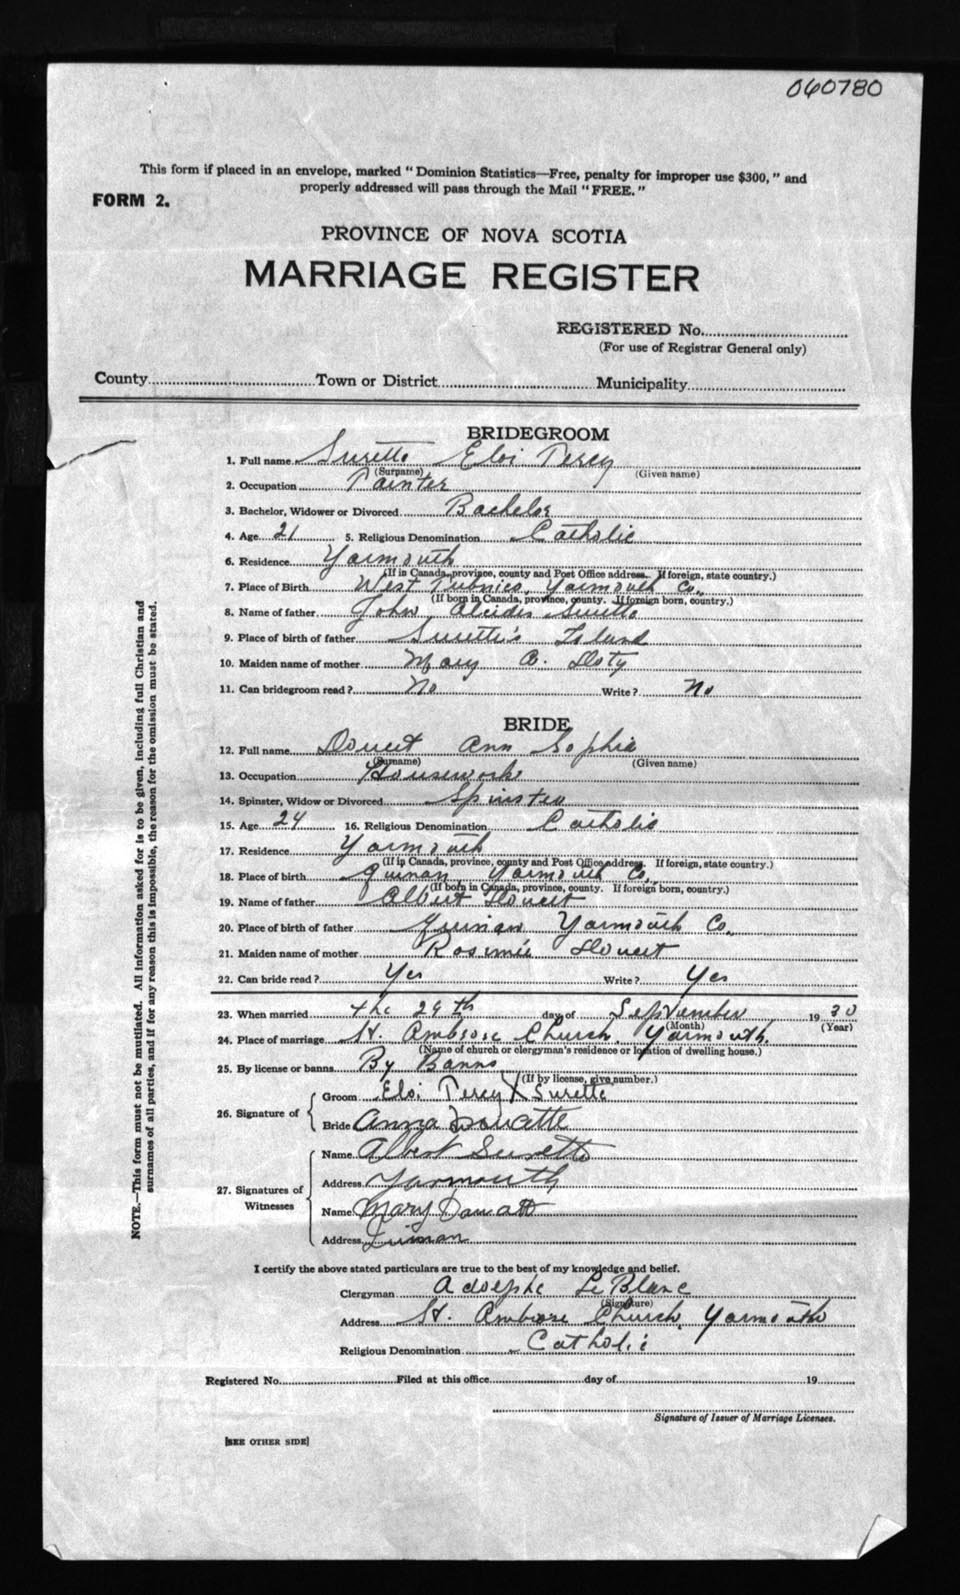 060780
This form if placed in an envelope, marked "Dominion Statistics—Free, penalty for improper use $300," and
properly addressed will pass through the Mail "FREE."
FORM 2.
PROVINCE OF NOVA SCOTIA
MARRIAGE REGISTER
REGISTERED No.
(For use of Registrar General only)
County Town or District Municipality
BRIDEGROOM
1. Full name Surette Eloi Percy
(Surname) (Given name)
2. Occupation Painter
3. Bachelor, Widower or Divorced Bachelor
4. Age 21 5. Religious Denomination Catholic
6. Residence Yarmouth
(If in Canada, province, county and Post Office address. If foreign, state country.)
7. Place of Birth West Pubnico, Yarmouth Co.
(If born in Canada, province, county. If foreign born, country.)
8. Name of father John Alcide Surette
9. Place of birth of father Surette's Island
10. Maiden name of mother Mary Doty
11. Can bridegroom read? No Write? No
BRIDE
12. Full name Doucet Ann Sophia
(Surname) (Given name)
13. Occupation Housework
14. Spinster, Widow or Divorced Spinster
15. Age 24 16. Religious Denomination Catholic
17. Residence Yarmouth
(If in Canada, province, county and Post Office address. If foreign, state country.)
18. Place of birth Quinan Yarmouth Co.
(If born in Canada, province, county. If foreign born, country.)
19. Name of father Albert Doucet
20. Place of birth of father Quinan Yarmouth Co.
21. Maiden name of mother Rosimée Doucet
22. Can bride read? Yes Write? Yes
23. When married the 29th day of September 1930
(Month) (Year)
24. Place of marriage St. Ambrose Church, Yarmouth.
(Name of church or clergyman's residence or location of dwelling house.)
25. By license or banns By Banns
(If by license, give number.)
26. Signature of
Groom Eloi Percy X Surette
Bride Anna Doucette
27. Signatures of Witnesses
Name Albert Surette
Address Yarmouth
Name Mary
Address
I certify the above stated particulars are true to the best of my knowledge and belief.
Clergyman Adolphe LeBlanc
(Signature)
Address St. Ambrose Church, Yarmouth
Religious Denomination Catholic
Registered No. Filed at this office day of 19
Signature of Issuer of Marriage Licenses.
[SEE OTHER SIDE]
NOTE.—This form must not be mutilated. All information asked for is to be given, including full Christian and
surnames of all parties, and if for any reason this is impossible, the reason for the omission must be stated.